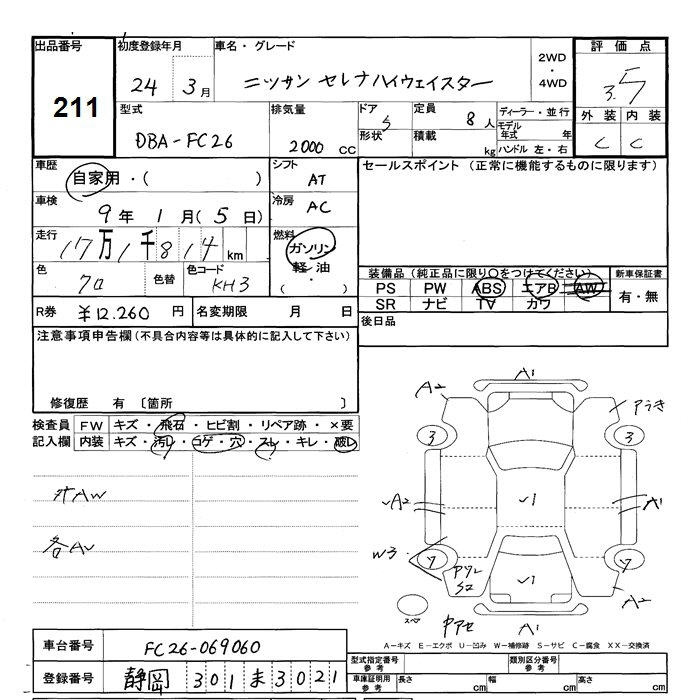 出品番号 初度登録年月 車名・グレード 2WD・4WD 評価点
211 24 3月 ニッサン セレナハイウェイスター 3.5
型式 排気量 ドア 5 定員 8人 ディーラー・並行 外装 内装
DBA-FC26 2000 CC 形状 積載 kg モデル年式 年 ハンドル 左・右 C C
車歴 自家用・( ) シフト AT セールスポイント (正常に機能するものに限ります)
車検 9年 1月(5日) 冷房 AC
走行 17万1千814km 燃料 ガソリン 軽油・( )
色 色替 色コード KH3
装備品(純正品に限り○をつけてください) 新車保証書
PS PW ABS エアB AW 有・無
SR ナビ TV カワ
R券 ¥12.260 円 名変期限 月 日 後日品
注意事項申告欄(不具合内容等は具体的に記入して下さい)
修復歴 有 〔箇所 〕
検査員 FW キズ・飛石・ヒビ割・リペア跡・×要
記入欄 内装 キズ・汚レ・コゲ・穴・スレ・キレ・破レ
A1
A2
3 3
A2 √1 A1
W3 √1
A2
A1
A-キズ E-エクボ U-凹み W-補修跡 S-サビ C-腐食 XX-交換済
車台番号 FC26-069060
登録番号 静岡 301 ま 3021
型式指定番号 参考 類別区分番号 参考
車庫証明用 参考 長さ cm 幅 cm 高さ cm